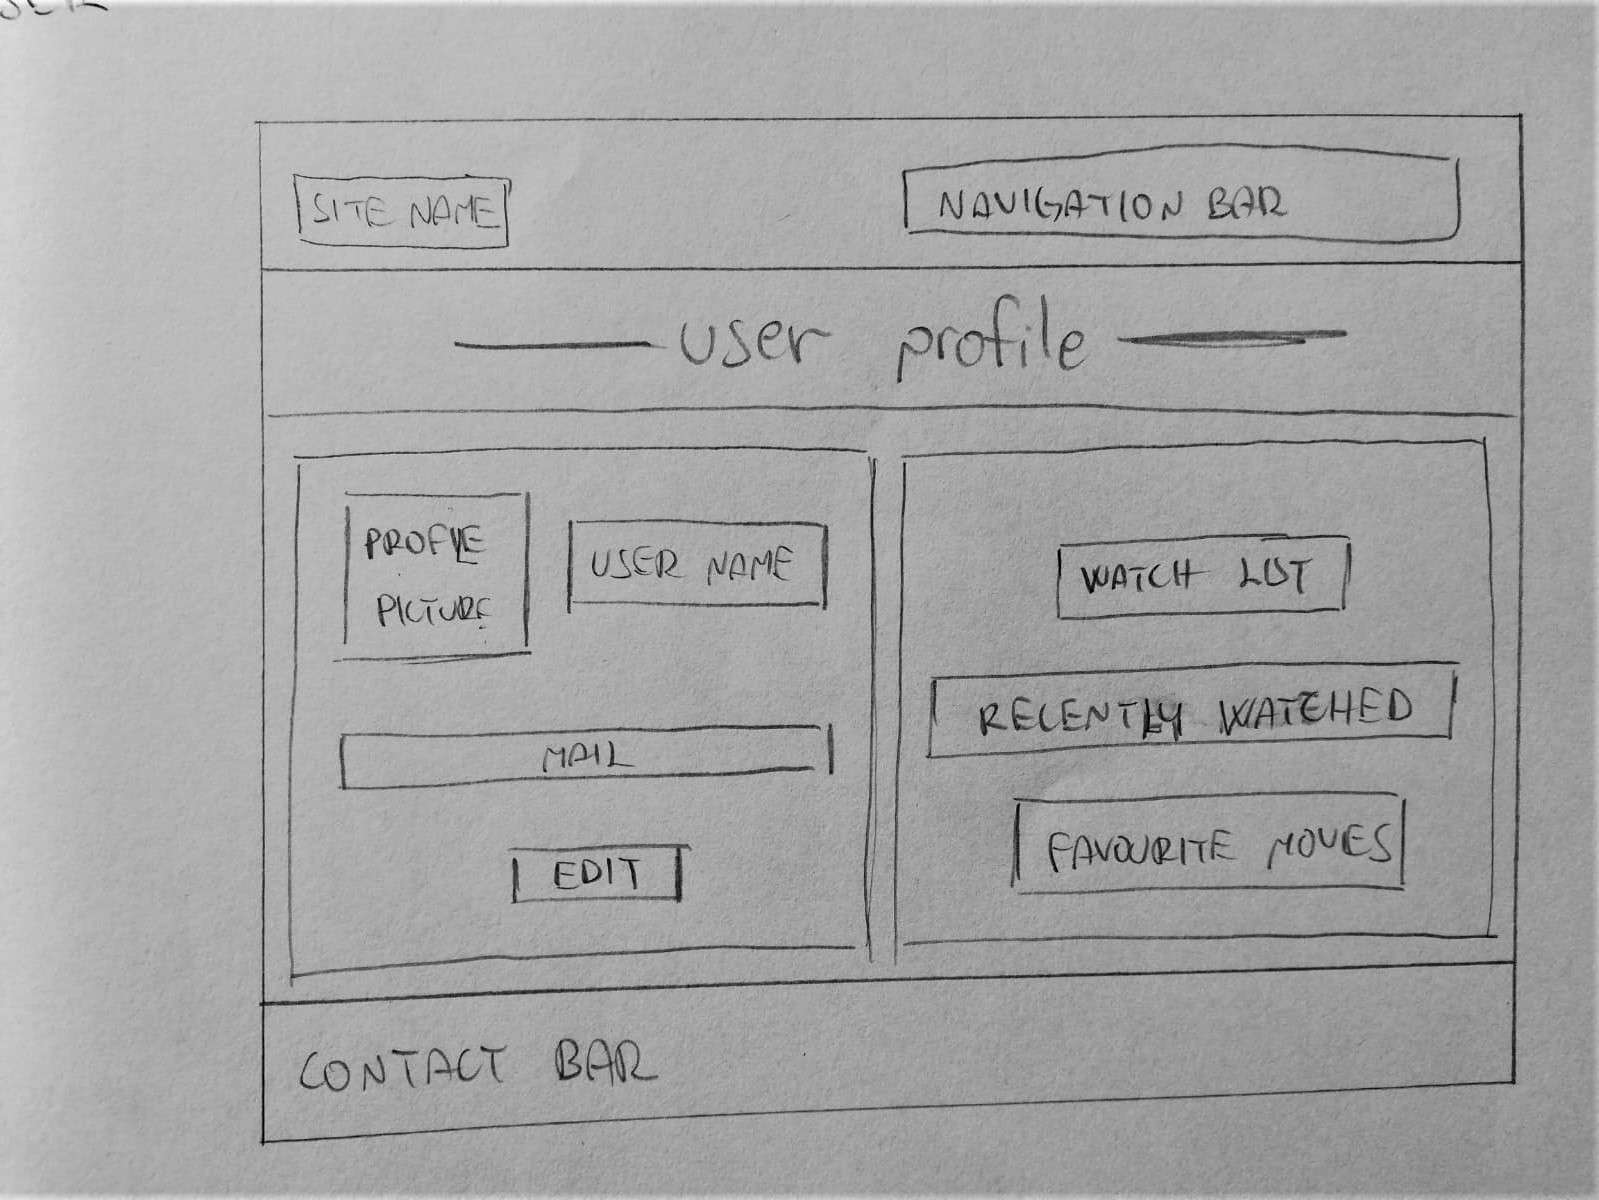 SITE NAME
NAVIGATION BAR
user profile
PROFILE
PICTURE
USER NAME
MAIL
EDIT
WATCH LIST
RECENTLY WATCHED
FAVOURITE MOVIES
CONTACT BAR